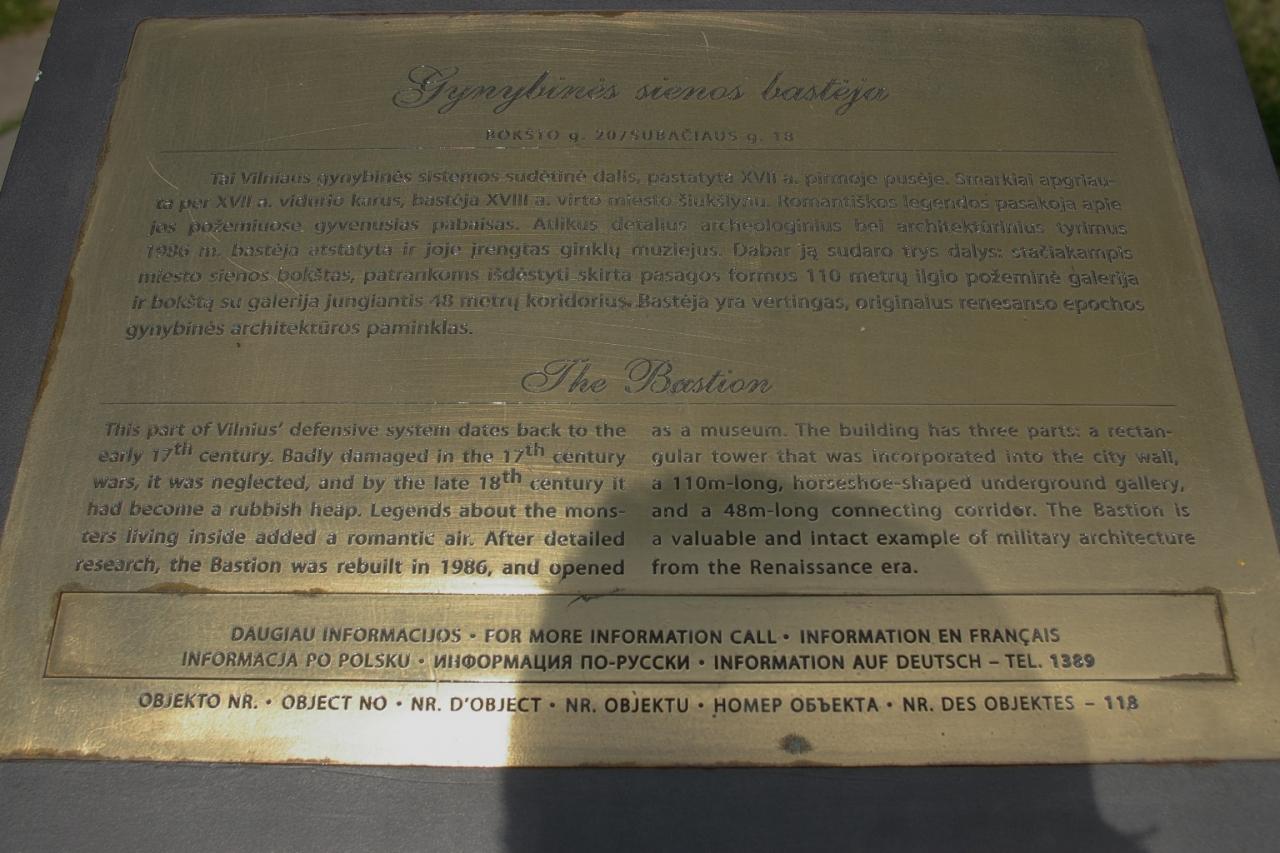 Gynybinės sienos bastėja
BOKŠTO g. 20/SUBAČIAUS g. 18
Tai Vilniaus gynybinės sistemos sudėtinė dalis, pastatyta XVII a. pirmoje pusėje. Smarkiai apgriau-
ta per XVII a. vidurio karus, bastėja XVIII a. virto miesto šiukšlynu. Romantiškos legendos pasakoja apie
jos požemiuose gyvenusias pabaisas. Atlikus detalius archeologinius bei architektūrinius tyrimus
1986 m. bastėja atstatyta ir joje įrengtas ginklų muziejus. Dabar ją sudaro trys dalys: stačiakampis
miesto sienos bokštas, patrankoms išdėstyti skirta pasagos formos 110 metrų ilgio požeminė galerija
ir bokštą su galerija jungiantis 48 metrų koridorius. Bastėja yra vertingas, originalus renesanso epochos
gynybinės architektūros paminklas.
The Bastion
This part of Vilnius' defensive system dates back to the
early 17th century. Badly damaged in the 17th century
wars, it was neglected, and by the late 18th century it
had become a rubbish heap. Legends about the mons-
ters living inside added a romantic air. After detailed
research, the Bastion was rebuilt in 1986, and opened
as a museum. The building has three parts: a rectan-
gular tower that was incorporated into the city wall,
a 110m-long, horseshoe-shaped underground gallery,
and a 48m-long connecting corridor. The Bastion is
a valuable and intact example of military architecture
from the Renaissance era.
DAUGIAU INFORMACIJOS • FOR MORE INFORMATION CALL • INFORMATION EN FRANÇAIS
INFORMACJA PO POLSKU • ИНФОРМАЦИЯ ПО-РУССКИ • INFORMATION AUF DEUTSCH – TEL. 1389
OBJEKTO NR. • OBJECT NO • NR. D'OBJECT • NR. OBJEKTU • НОМЕР ОБЪЕКТА • NR. DES OBJEKTES – 118